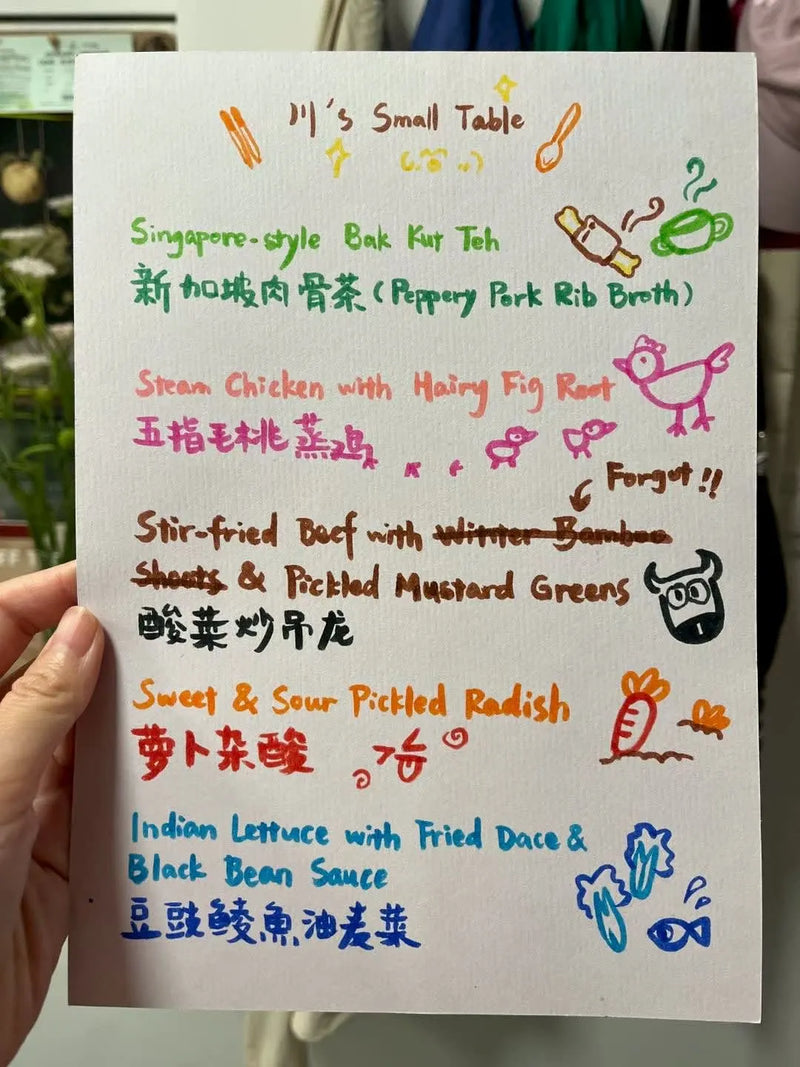 川's Small Table
Singapore-style Bak Kut Teh
新加坡肉骨茶(Peppery Pork Rib Broth)
Steam Chicken with Hairy Fig Root
五指毛桃蒸鸡
Forgot!!
Stir-fried Beef with Winter Bamboo
Shoots & Pickled Mustard Greens
酸菜炒吊龙
Sweet & Sour Pickled Radish
萝卜杂酸
Indian Lettuce with Fried Dace &
Black Bean Sauce
豆豉鲮魚油麦菜